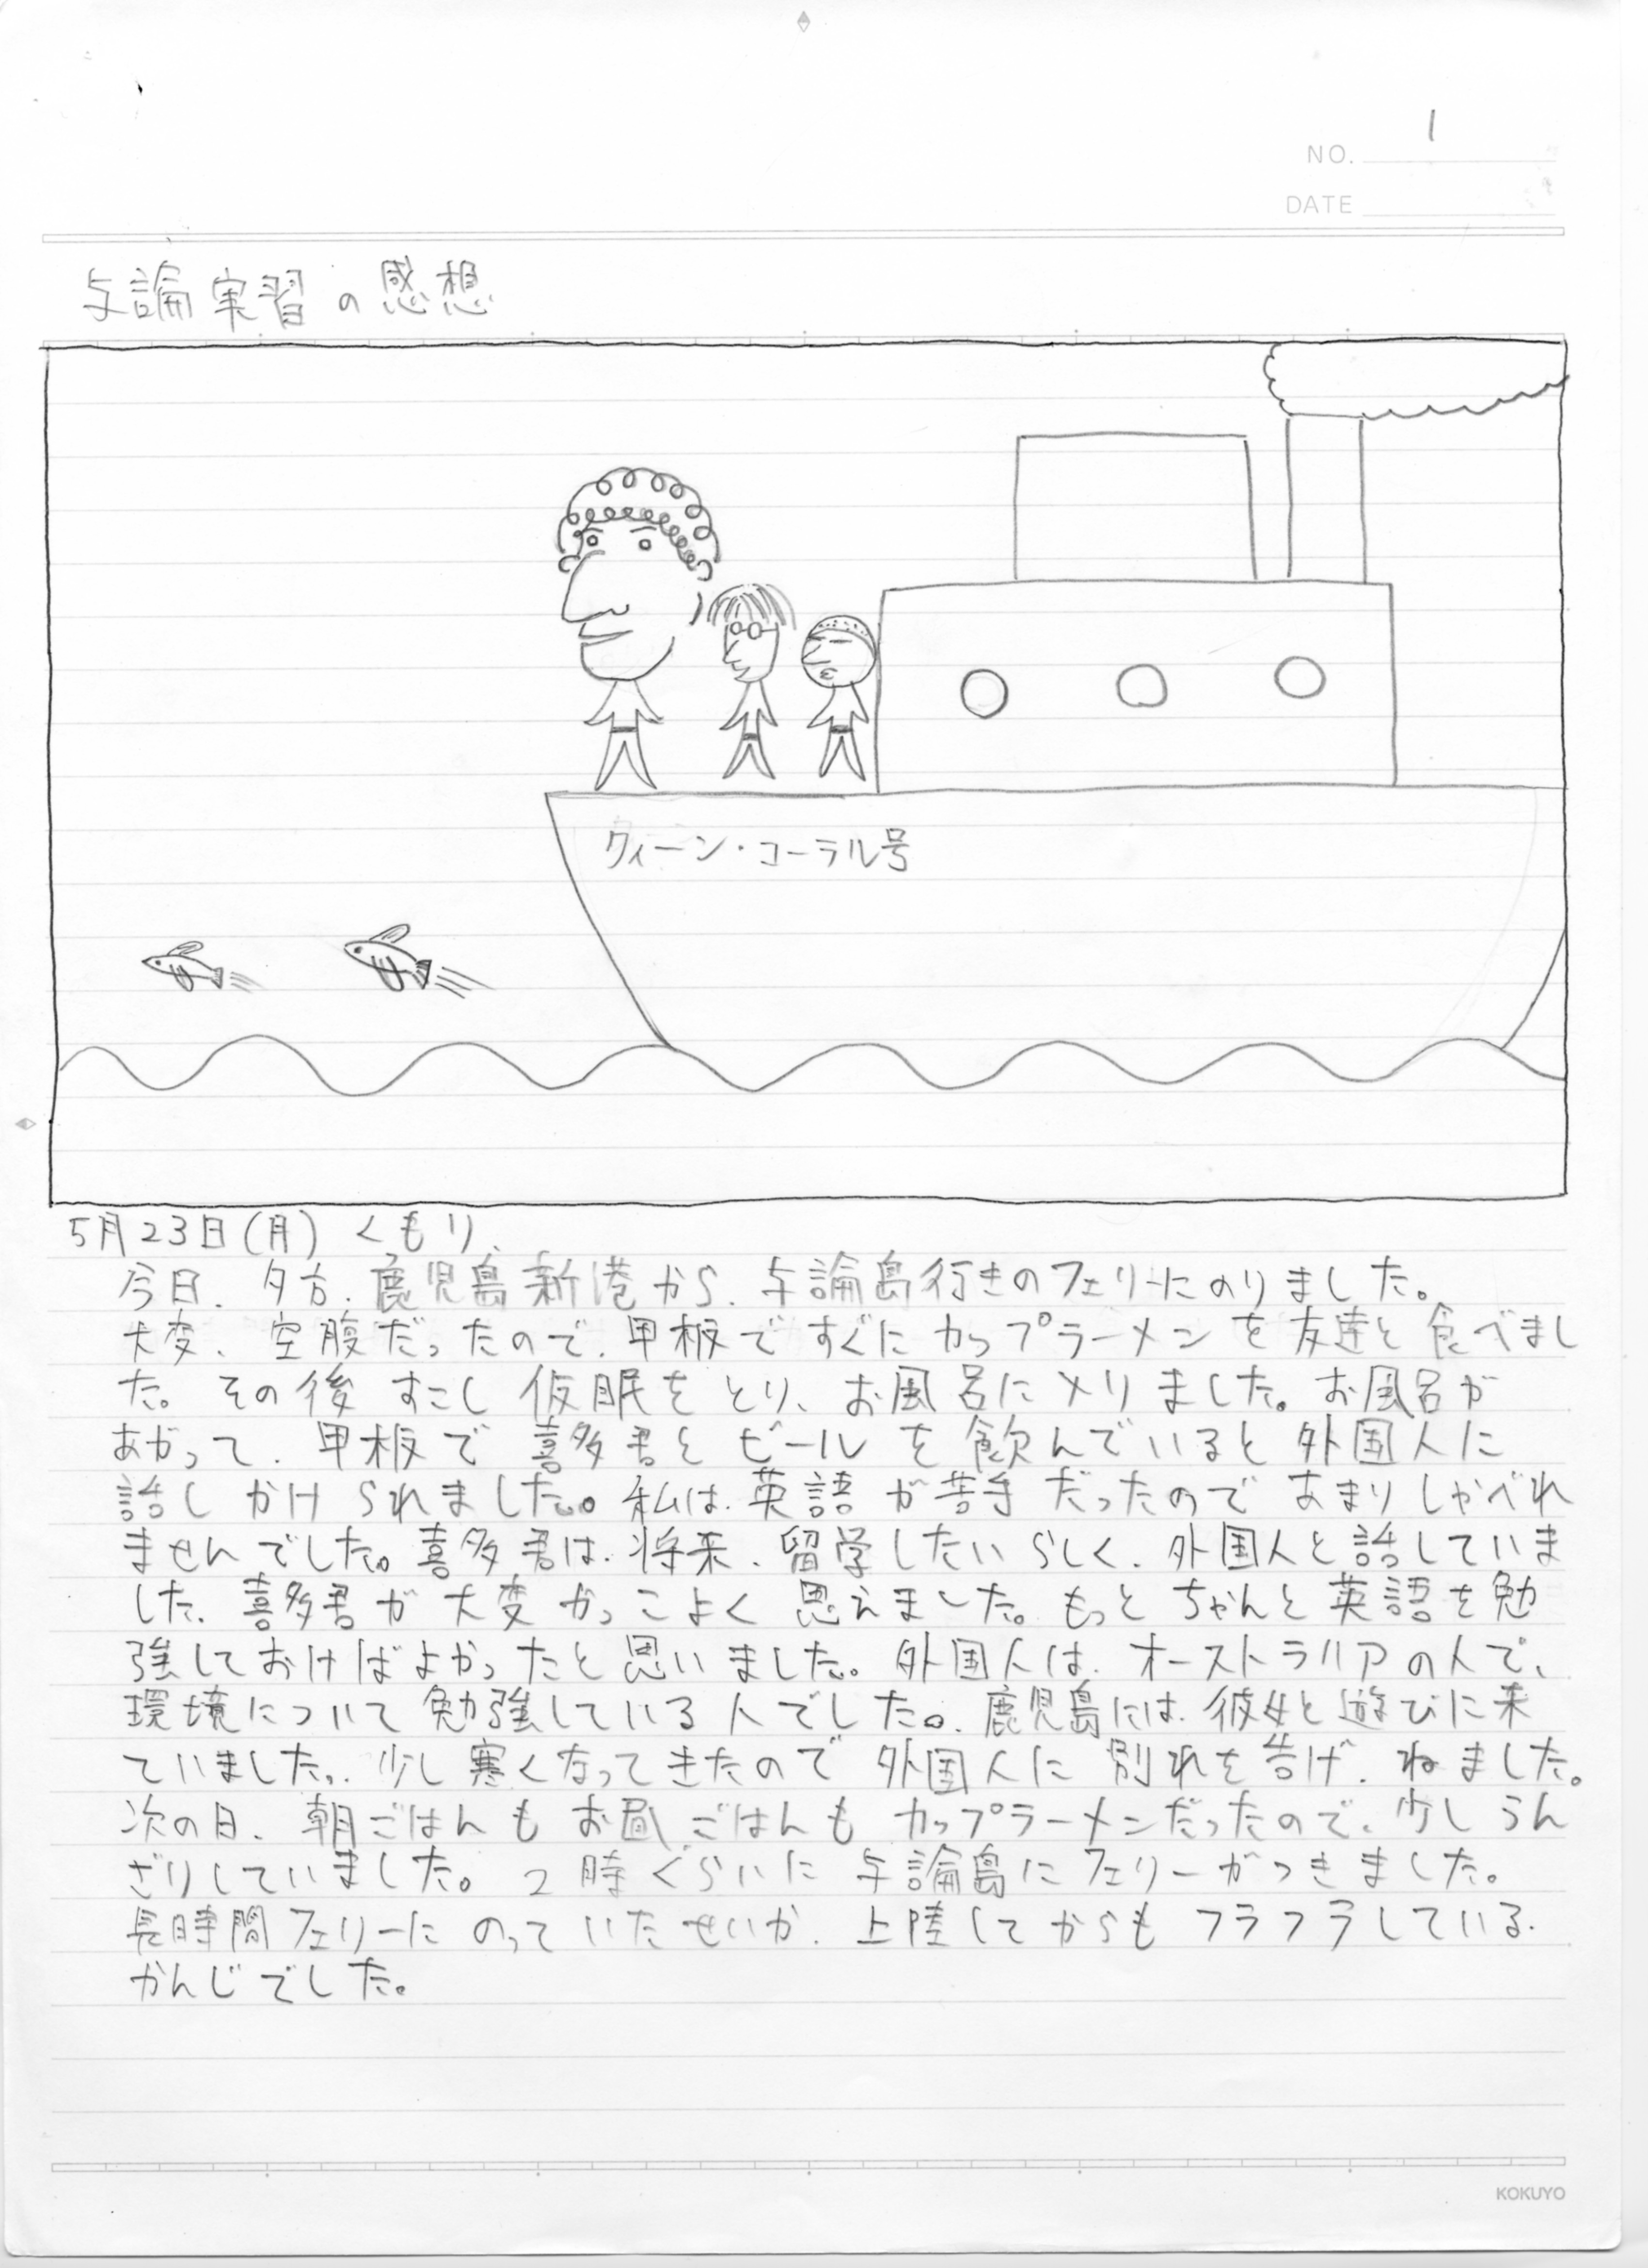 1
NO.
DATE
与論実習の感想
クィーン・コーラル号
5月23日(月) くもり.
今日、夕方、鹿児島新港から、与論島行きのフェリーにのりました。
大変、空腹だったので、甲板ですぐにカップラーメンを友達と食べまし
た。その後すこし仮眠をとり、お風呂に入りました。お風呂が
あがって、甲板で喜多君とビールを飲んでいると外国人に
話しかけられました。私は、英語が苦手だったのであまりしゃべれ
ませんでした。喜多君は、将来、留学したいらしく、外国人と話していま
した。喜多君が大変かっこよく思えました。もっとちゃんと英語を勉
強しておけばよかったと思いました。外国人は、オーストラリアの人で、
環境について勉強している人でした。鹿児島には、彼女と遊びに来
ていました。少し寒くなってきたので外国人に別れを告げ、ねました。
次の日、朝ごはんもお昼ごはんもカップラーメンだったので、少しうん
ざりしていました。2時ぐらいに与論島にフェリーがつきました。
長時間フェリーにのっていたせいか、上陸してからもフラフラしている
かんじでした。
KOKUYO